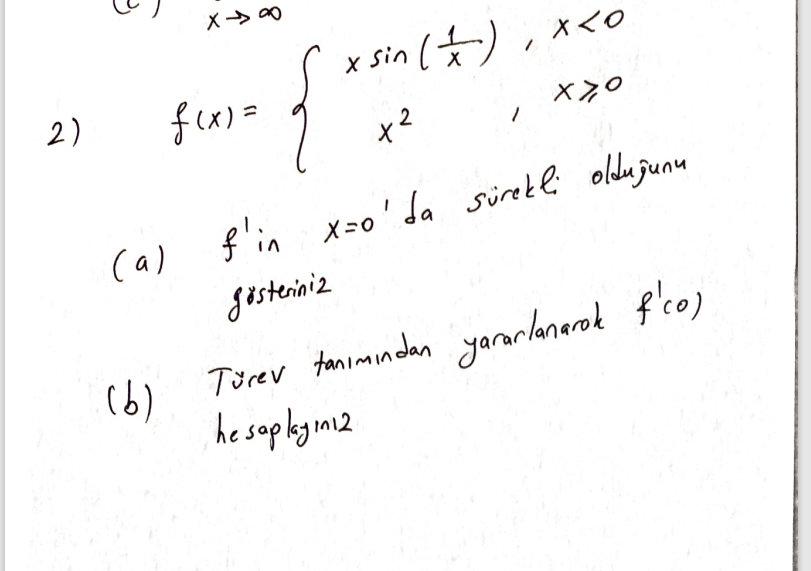 x → ∞
2) f(x) = { x sin(1/x) , x<0
x² , x⩾0
(a) f'in x=0'da sürekli olduğunu
gösteriniz
(b) Türev tanımından yararlanarak f'(0)
hesaplayınız